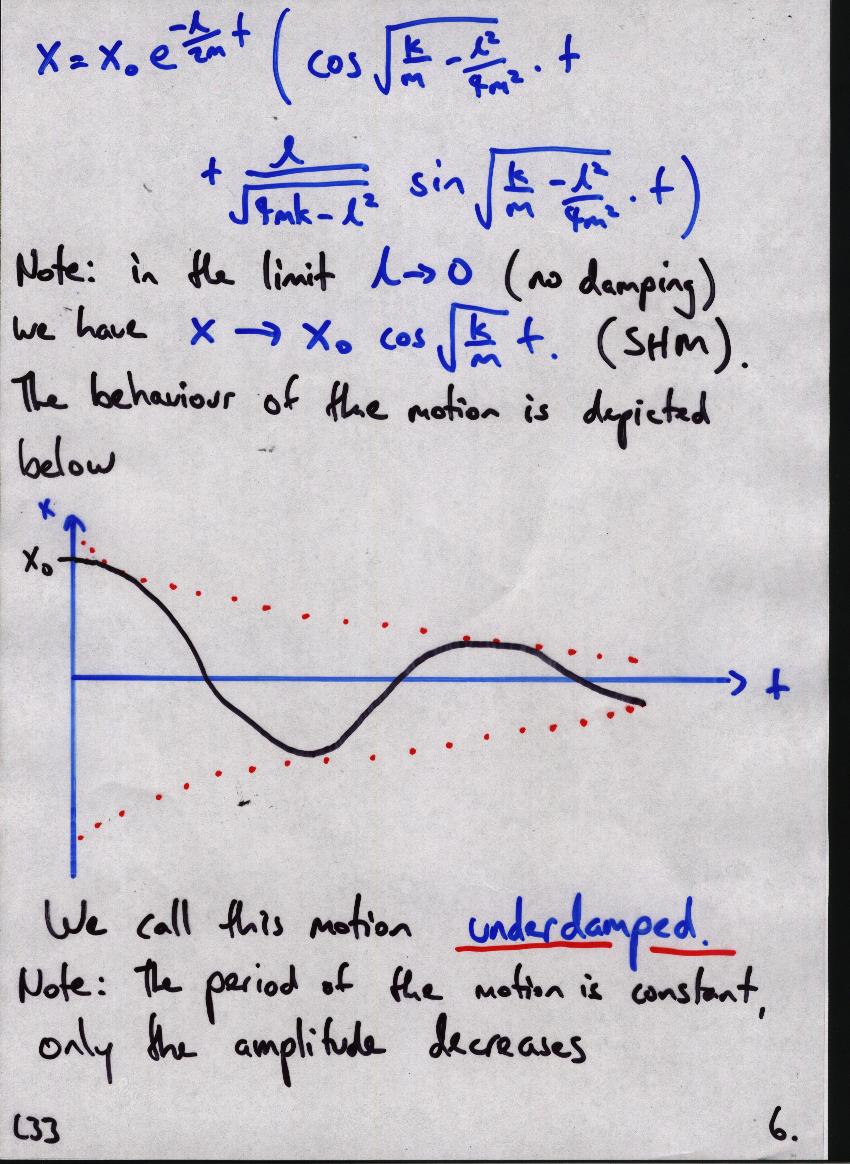 x = x₀ e^(-λ/2m t) ( cos √(k/m - λ²/4m²) . t
+ λ/√(4mk - λ²) sin √(k/m - λ²/4m²) . t )
Note: in the limit λ → 0 (no damping)
we have x → x₀ cos √(k/m) t. (SHM).
The behaviour of the motion is depicted
below
x
x₀
t
We call this motion underdamped.
Note: The period of the motion is constant,
only the amplitude decreases
L33 6.